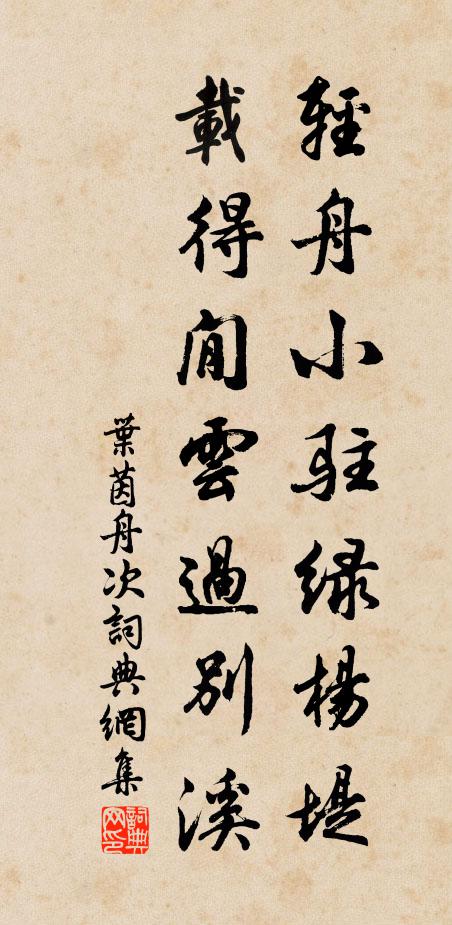 輕舟小駐緑楊堤
載得閒雲過別溪
葉茵舟次詞典網集
詞典網印